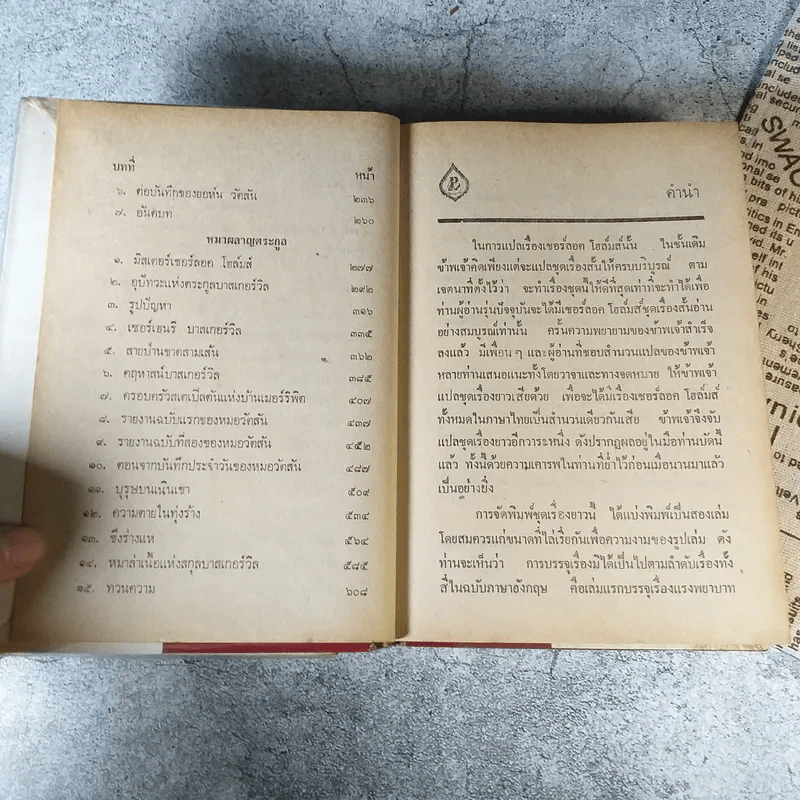 บทที่ หน้า
๖. ต่อบันทึกของยอห์น วัตสัน ๒๓๖
๗. อันตบท ๒๖๐
หมาผลาญตระกูล
๑. มิสเตอร์เชอร์ลอค โฮล์มส์ ๒๗๗
๒. อุบัทวะแห่งตระกูลบาสเกอร์วิล ๒๙๒
๓. รูปปัญหา ๓๑๖
๔. เซอร์เฮนรี บาสเกอร์วิล ๓๓๕
๕. สายป่านขาดสามเส้น ๓๖๒
๖. คฤหาสน์บาสเกอร์วิล ๓๘๕
๗. ครอบครัวสเตเปิลตันแห่งบ้านเมอร์ริพิต ๔๐๗
๘. รายงานฉบับแรกของหมอวัตสัน ๔๓๗
๙. รายงานฉบับที่สองของหมอวัตสัน ๔๕๒
๑๐. ตอนจากบันทึกประจำวันของหมอวัตสัน ๔๘๗
๑๑. บุรุษบนเนินเขา ๕๐๙
๑๒. ความตายในทุ่งร้าง ๕๓๔
๑๓. ขึงร่างแห ๕๖๔
๑๔. หมาล่าเนื้อแห่งสกุลบาสเกอร์วิล ๕๘๕
๑๕. ทวนความ ๖๐๘
คำนำ
ในการแปลเรื่องเชอร์ลอค โฮล์มส์นั้น ในชั้นเดิม
ข้าพเจ้าคิดเพียงแต่จะแปลชุดเรื่องสั้นให้ครบบริบูรณ์ ตาม
เจตนาที่ตั้งไว้ว่า จะทำเรื่องชุดนี้ให้ดีที่สุดเท่าที่จะทำได้เพื่อ
ท่านผู้อ่านรุ่นปัจจุบันจะได้มีเชอร์ลอค โฮล์มส์ชุดเรื่องสั้นอ่าน
อย่างสมบูรณ์เท่านั้น ครั้นความพยายามของข้าพเจ้าสำเร็จ
ลงแล้ว มีเพื่อนๆ และผู้อ่านที่ชอบสำนวนแปลของข้าพเจ้า
หลายท่านเสนอแนะทั้งโดยวาจาและทางจดหมาย ให้ข้าพเจ้า
แปลชุดเรื่องยาวเสียด้วย เพื่อจะได้มีเรื่องเชอร์ลอค โฮล์มส์
ทั้งหมดในภาษาไทยเป็นสำนวนเดียวกันเสีย ข้าพเจ้าจึงจับ
แปลชุดเรื่องยาวอีกวาระหนึ่ง ดังปรากฏผลอยู่ในมือท่านบัดนี้
แล้ว ทั้งนี้ด้วยความเคารพในท่านที่ย้ำไว้ก่อนเมื่อนานมาแล้ว
เป็นอย่างยิ่ง
การจัดพิมพ์ชุดเรื่องยาวนี้ ได้แบ่งพิมพ์เป็นสองเล่ม
โดยสมควรแก่ขนาดที่ไล่เรี่ยกันเพื่อความงามของรูปเล่ม ดัง
ท่านจะเห็นว่า การบรรจุเรื่องมิได้เป็นไปตามลำดับเรื่องทั้ง
สี่ในฉบับภาษาอังกฤษ คือเล่มแรกบรรจุเรื่องแรงพยาบาท